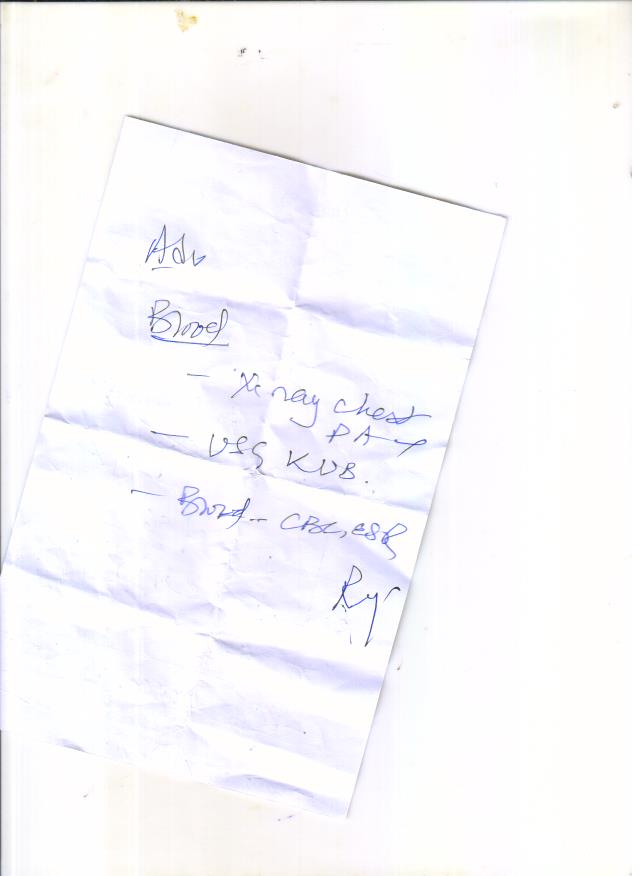 Adv
Blood
- X-ray chest
PA
- USG KUB.
- Blood - CBC, ESR